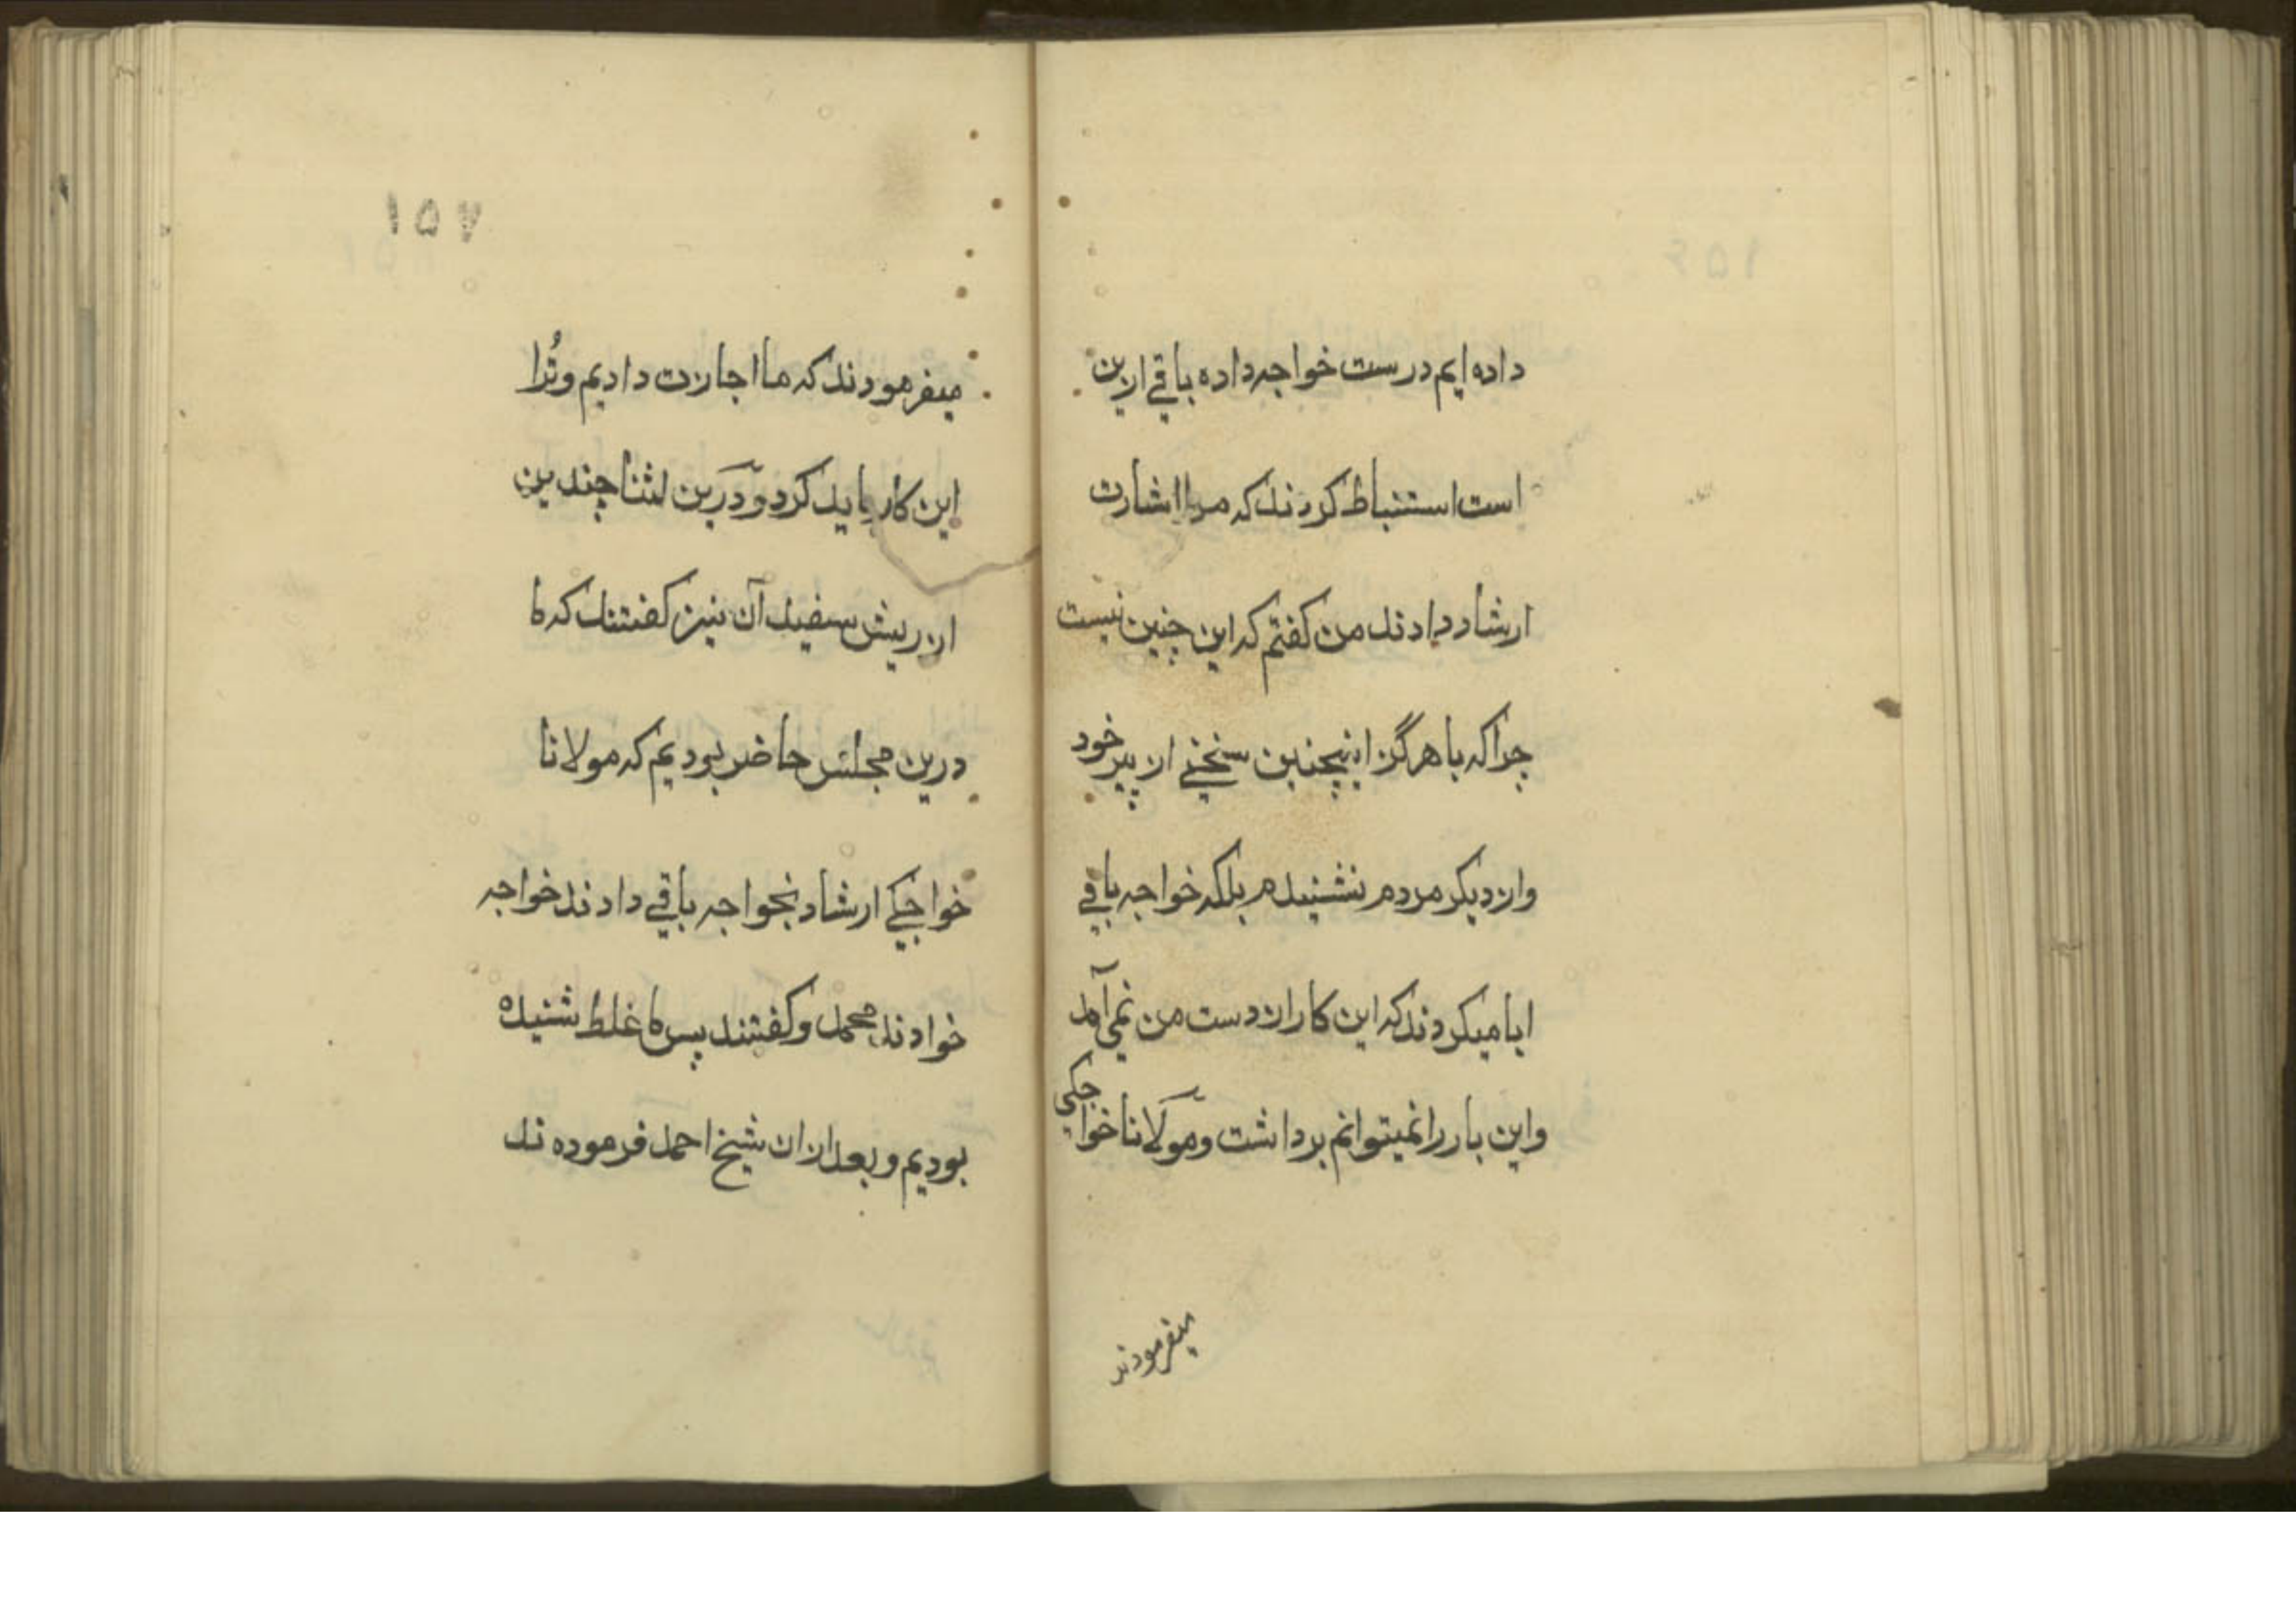 داده ایم درست خواجه داده باقی ازین
است استنباط کردند که مرا اشارت
ارشاد دادند من کفتم که این چنین نیست
چرا که ما هرگز اینچنین سخنے از پیر خود
واز دیکر مردم نشنیدم بلکه خواجه باقے
ابا میکردند که این کار از دست من نمی آمد
واین بار را نمیتوانم برداشت ومولانا خواجکی
میفرمودند
۱۵۷
میفرمودند که ما اجازت دادیم وتُرا
این کار باید کرد و درین اثنا چندین
از ریش سفید آن نیز کفتند که ما
درین مجلس حاضر بودیم که مولانا
خواجکے ارشاد بخواجه باقے دادند خواجه
خواوند محمد وکفتند پس ما غلط شنیده
بودیم و بعد ازان شیخ احمد فرموده ند